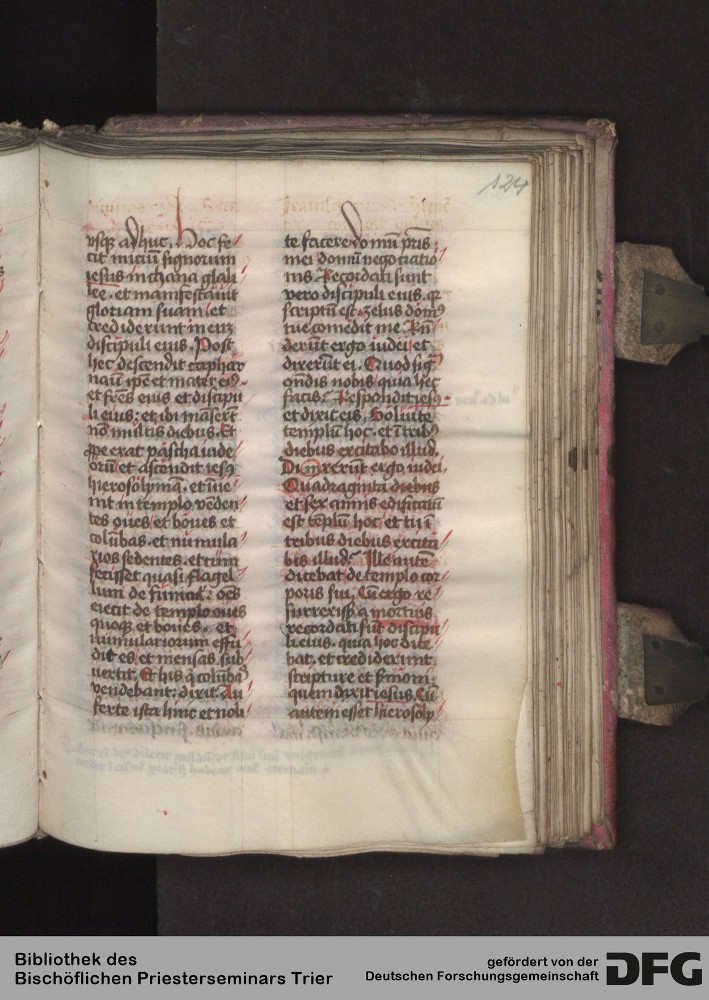 124
vsqȝ adhuc. Hoc fe
cit iniciū signorum
iesus in chana galı
lee. et manifestauit
gloriam suam et
crediderunt in eum
discipuli eius. Post
hec descendit caphar
naū ip̄e et mater ei9
et fr̄es eius et discipu
li eius: et ibi māserūt
nō multis diebus. Et
ꝓpe erat pascha iude
orū et ascendit iesꝰ
hierosolymā. et īue
nit in templo vēden
tes oues et boues et
colūbas. et numula
rios sedentes. et cum
fecisset quasi flagel
lum de funicul': oēs
eiecit de templo oues
quoqȝ et boues. et
numulariorum effu
dit es et mensas sub
uertit. Et his q̄ colūbas
vendebant: dixit. Au
ferte ista hinc et noli
te facere domū pr̄is
mei domū negociatio
nis. Recordati sunt
vero discipuli eius. qꝛ
scriptū est zelus domꝰ
tue comedit me. Rn̄
derūt ergo iudei et
dixerūt ei. Quod sıgͫ
on̄dis nobis quia hec
facis? Respondit iesꝰ
et dixit eis. Soluite
templū hoc. et ī tribꝰ
diebus excitabo illud.
Dixerūt ergo iudei.
Quadraginta diebus
et sex annis edificatū
est tēplū hoc et tu ī
tribus diebus excita
bis illud? Ille autē
dicebat de templo cor
poris sui. Cū ergo re
surrexiss a mortuis
recordati sūt discipu
li eius. quia hoc dice
bat. et crediderunt
scripture et sermoni
quem dixit iesus. Cū
autem esset hierosolı
Bibliothek des
Bischöflichen Priesterseminars Trier
gefördert von der
Deutschen Forschungsgemeinschaft
DFG